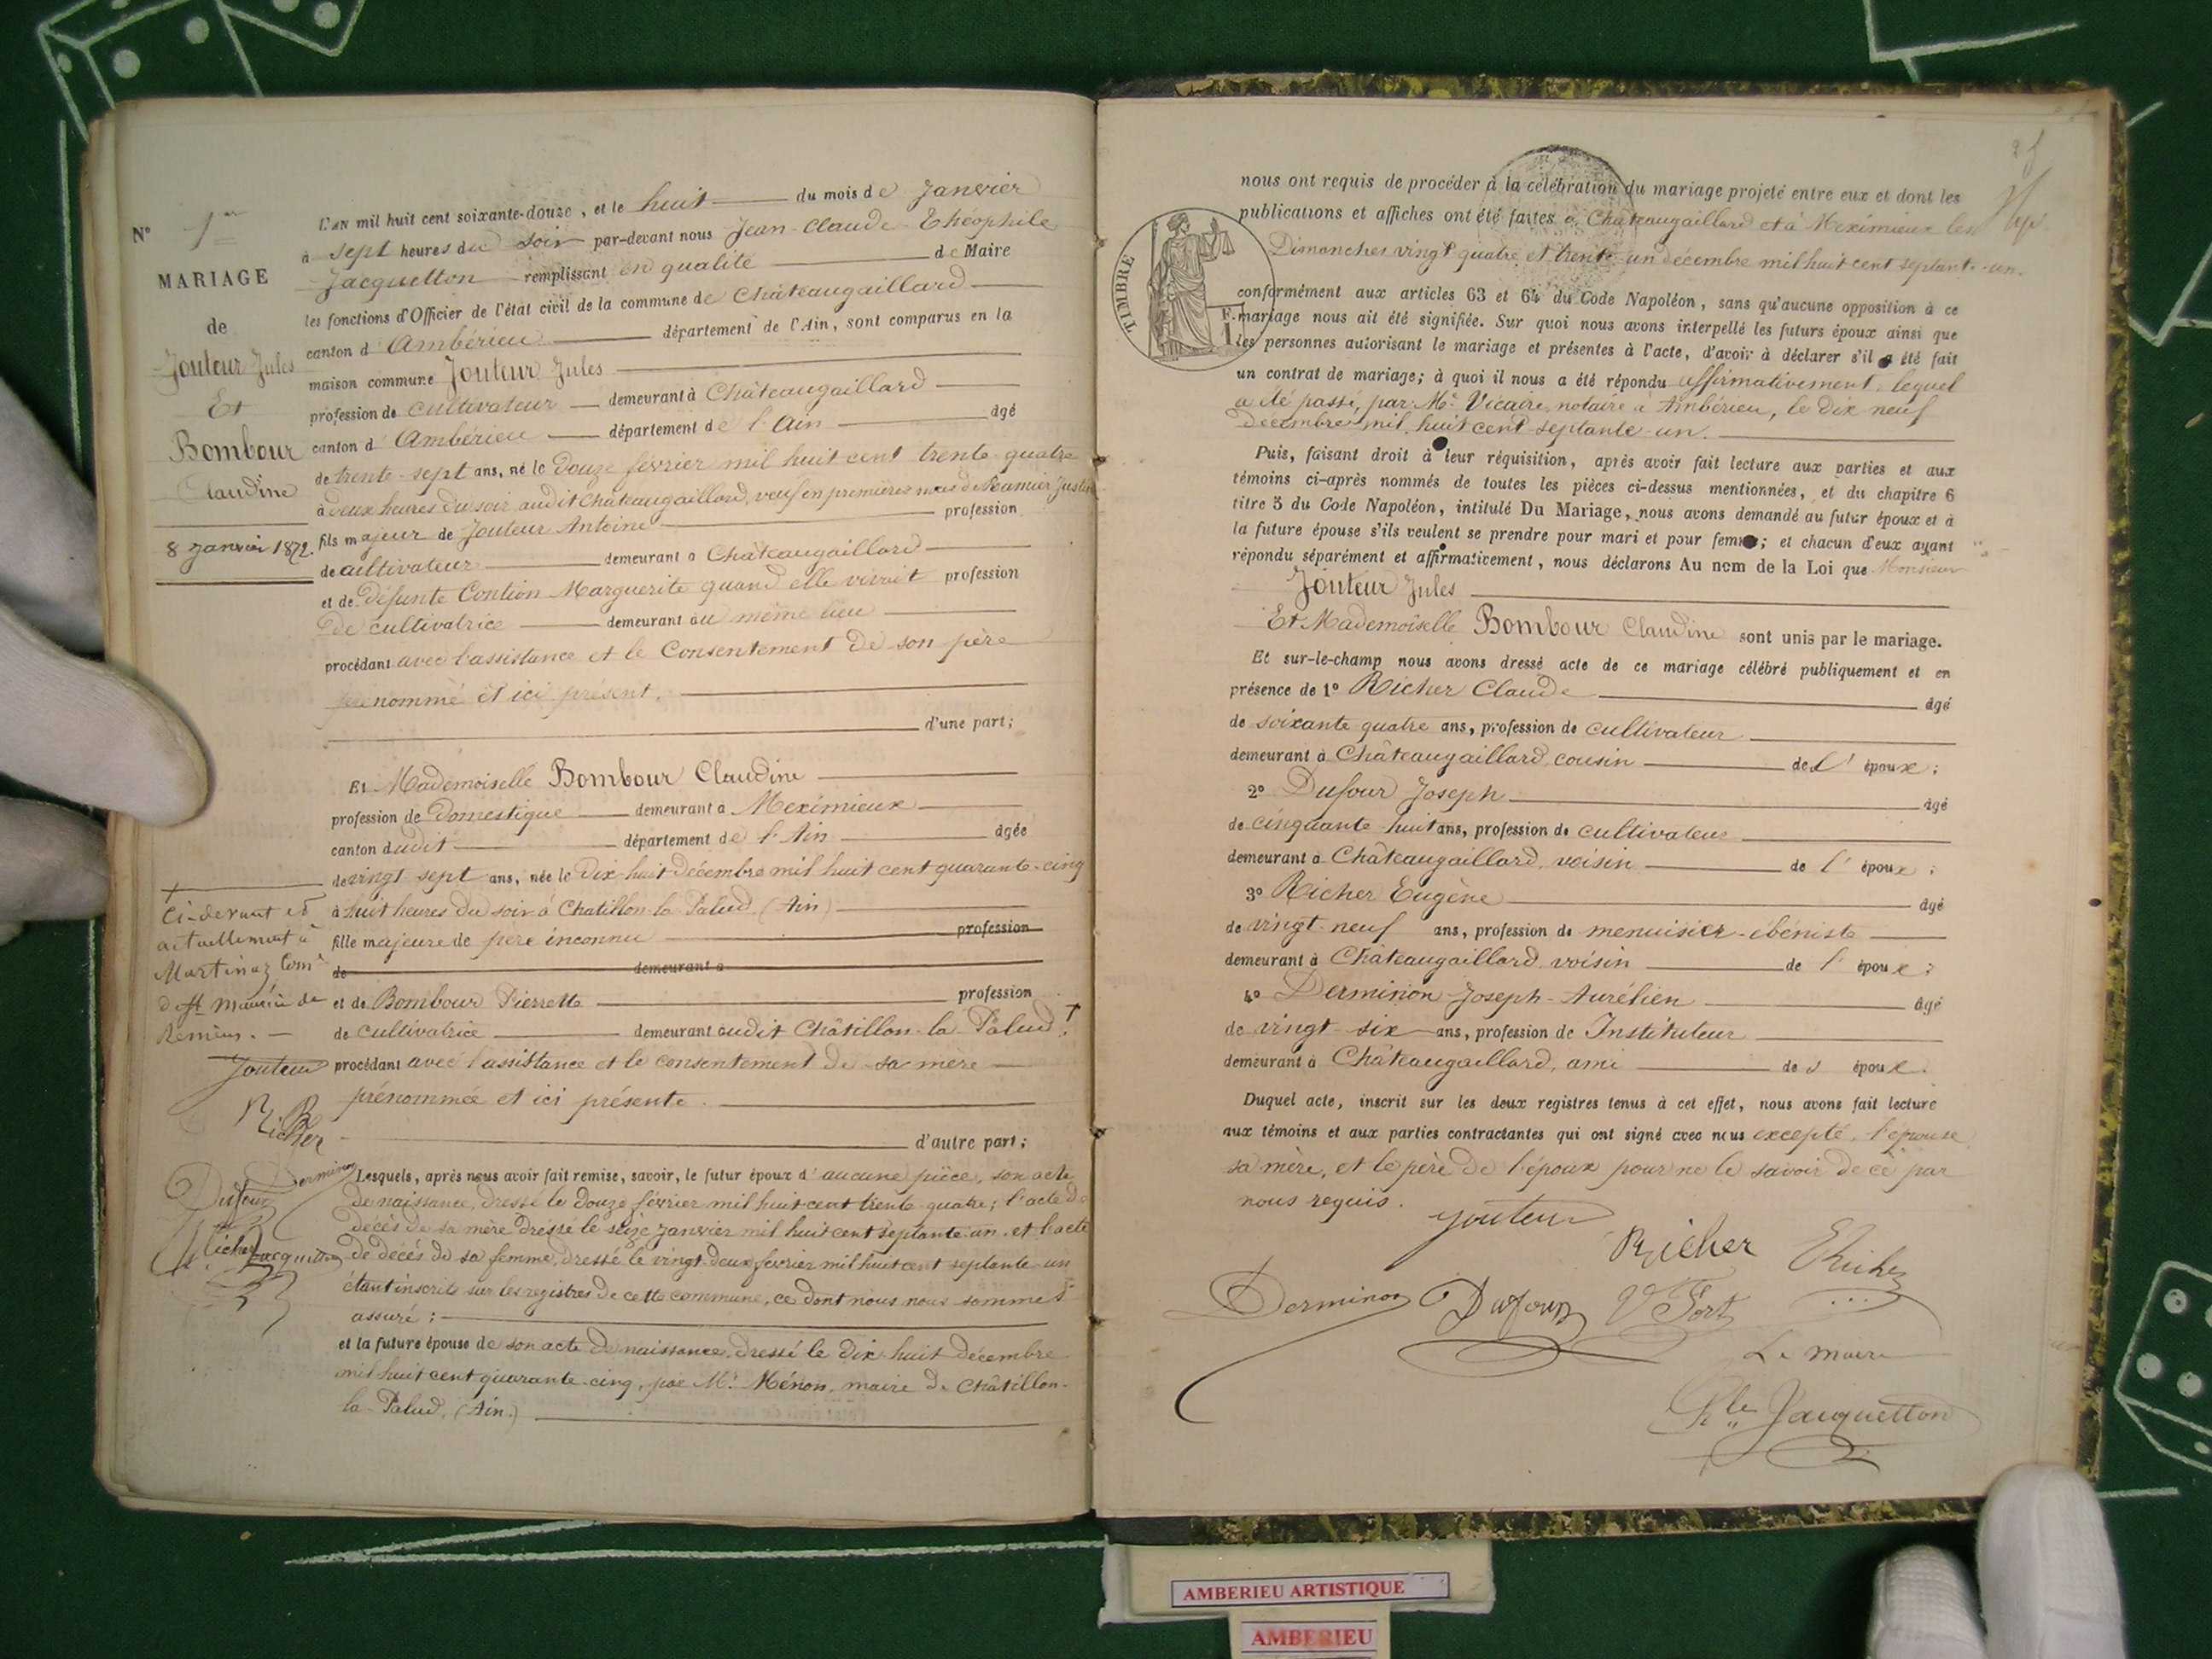 N° 1er
MARIAGE
de
Jouteur Jules
Et
Bombour
Claudine
8 Janvier 1872.
L'AN mil huit cent soixante-douze, et le huit du mois de Janvier
à sept heures du soir par-devant nous Jean-Claude Théophile
Jacquetton remplissant en qualité de Maire
les fonctions d'Officier de l'état civil de la commune de Châteaugaillard
canton d'Ambérieu département de l'Ain, sont comparus en la
maison commune Jouteur Jules
profession de cultivateur demeurant à Châteaugaillard
canton d'Ambérieu département de l'Ain âgé
de trente-sept ans, né le douze février mil huit cent trente-quatre
à deux heures du soir audit Châteaugaillard, veuf en premières
fils majeur de Jouteur Antoine profession
de cultivateur demeurant à Châteaugaillard
et de défunte Contion Marguerite quand elle vivait profession
de cultivatrice demeurant au même lieu
procédant avec l'assistance et le consentement de son père
prénommé et ici présent.
d'une part;
Et Mademoiselle Bombour Claudine
profession de domestique demeurant à Meximieux
canton dudit département de l'Ain âgée
de vingt sept ans, née le dix huit décembre mil huit cent quarante-cinq
à huit heures du soir à Chatillon-la-Palud (Ain)
fille majeure de père inconnu profession
de demeurant à
et de Bombour Pierrette profession
de cultivatrice demeurant audit Châtillon-la-Palud †
procédant avec l'assistance et le consentement de sa mère
prénommée et ici présente.
d'autre part;
† Ci-devant et
actuellement à
Martinaz Comne
de St Maurice de
Remens.
Jouteur
Richer
Derminon
Dufour
Richer Jacquetton
Lesquels, après nous avoir fait remise, savoir, le futur époux d'aucune pièce, son acte
de naissance, dressé le douze février mil huit cent trente-quatre; l'acte de
décès de sa mère dressé le seize janvier mil huit cent septante-un, et l'acte
de décès de sa femme, dressé le vingt-deux février mil huit cent septante-un
étant inscrits sur les registres de cette commune, ce dont nous nous sommes
assuré;
et la future épouse de son acte de naissance, dressé le dix huit décembre
mil huit cent quarante-cinq, par Mr. Ménon, maire de Châtillon-
la-Palud, (Ain.)
nous ont requis de procéder à la célébration du mariage projeté entre eux et dont les
publications et affiches ont été faites à Châteaugaillard et à Meximieux les
Dimanches vingt quatre et trente-un décembre mil huit cent septante-un.
TIMBRE
conformément aux articles 63 et 64 du Code Napoléon, sans qu'aucune opposition à ce
mariage nous ait été signifiée. Sur quoi nous avons interpellé les futurs époux ainsi que
les personnes autorisant le mariage et présentes à l'acte, d'avoir à déclarer s'il a été fait
un contrat de mariage; à quoi il nous a été répondu affirmativement, lequel
a été passé, par Me. Vicaire, notaire à Ambérieu, le dix neuf
décembre mil huit cent septante-un.
Puis, faisant droit à leur réquisition, après avoir fait lecture aux parties et aux
témoins ci-après nommés de toutes les pièces ci-dessus mentionnées, et du chapitre 6
titre 5 du Code Napoléon, intitulé Du Mariage, nous avons demandé au futur époux et à
la future épouse s'ils veulent se prendre pour mari et pour femme; et chacun d'eux ayant
répondu séparément et affirmativement, nous déclarons Au nom de la Loi que Monsieur
Jouteur Jules
Et Mademoiselle Bombour Claudine sont unis par le mariage.
Et sur-le-champ nous avons dressé acte de ce mariage célébré publiquement et en
présence de 1° Richer Claude âgé
de soixante quatre ans, profession de cultivateur
demeurant à Châteaugaillard cousin de l'époux;
2° Dufour Joseph âgé
de cinquante-huit ans, profession de cultivateur
demeurant à Châteaugaillard, voisin de l'époux;
3° Richer Eugène âgé
de vingt-neuf ans, profession de menuisier-ébéniste
demeurant à Châteaugaillard voisin de l'époux;
4° Derminon Joseph-Aurélien âgé
de vingt-six ans, profession de Instituteur
demeurant à Châteaugaillard, ami de l'époux.
Duquel acte, inscrit sur les deux registres tenus à cet effet, nous avons fait lecture
aux témoins et aux parties contractantes qui ont signé avec nous excepté, l'épouse
sa mère, et le père de l'époux pour ne le savoir de ce par
nous requis.
Jouteur
Richer
E Richer
Derminon Dufour V Fort
Le maire
Jacquetton
AMBERIEU ARTISTIQUE
AMBERIEU